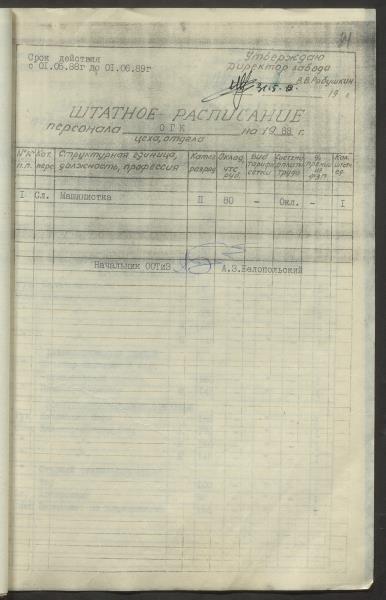 21
Утверждаю
Срок действия
директор завода
с 01.06.88г до 01.06.89г
В.В. Рябушкин
31.5.
19 г.
ШТАТНОЕ РАСПИСАНИЕ
персонала ОГК на 1988 г.
цеха, отдела
№№ п.п. Кат. перс. Структурная единица, должность, профессия Катег. разряд Оклад, чтс руб. Вид тарифн. сетки Система оплаты труда % премии из ФЗП Кол. штат. ед.
I Сл. Машинистка II 80 – Окл. – I
Начальник ООТиЗ А.З.Белопольский